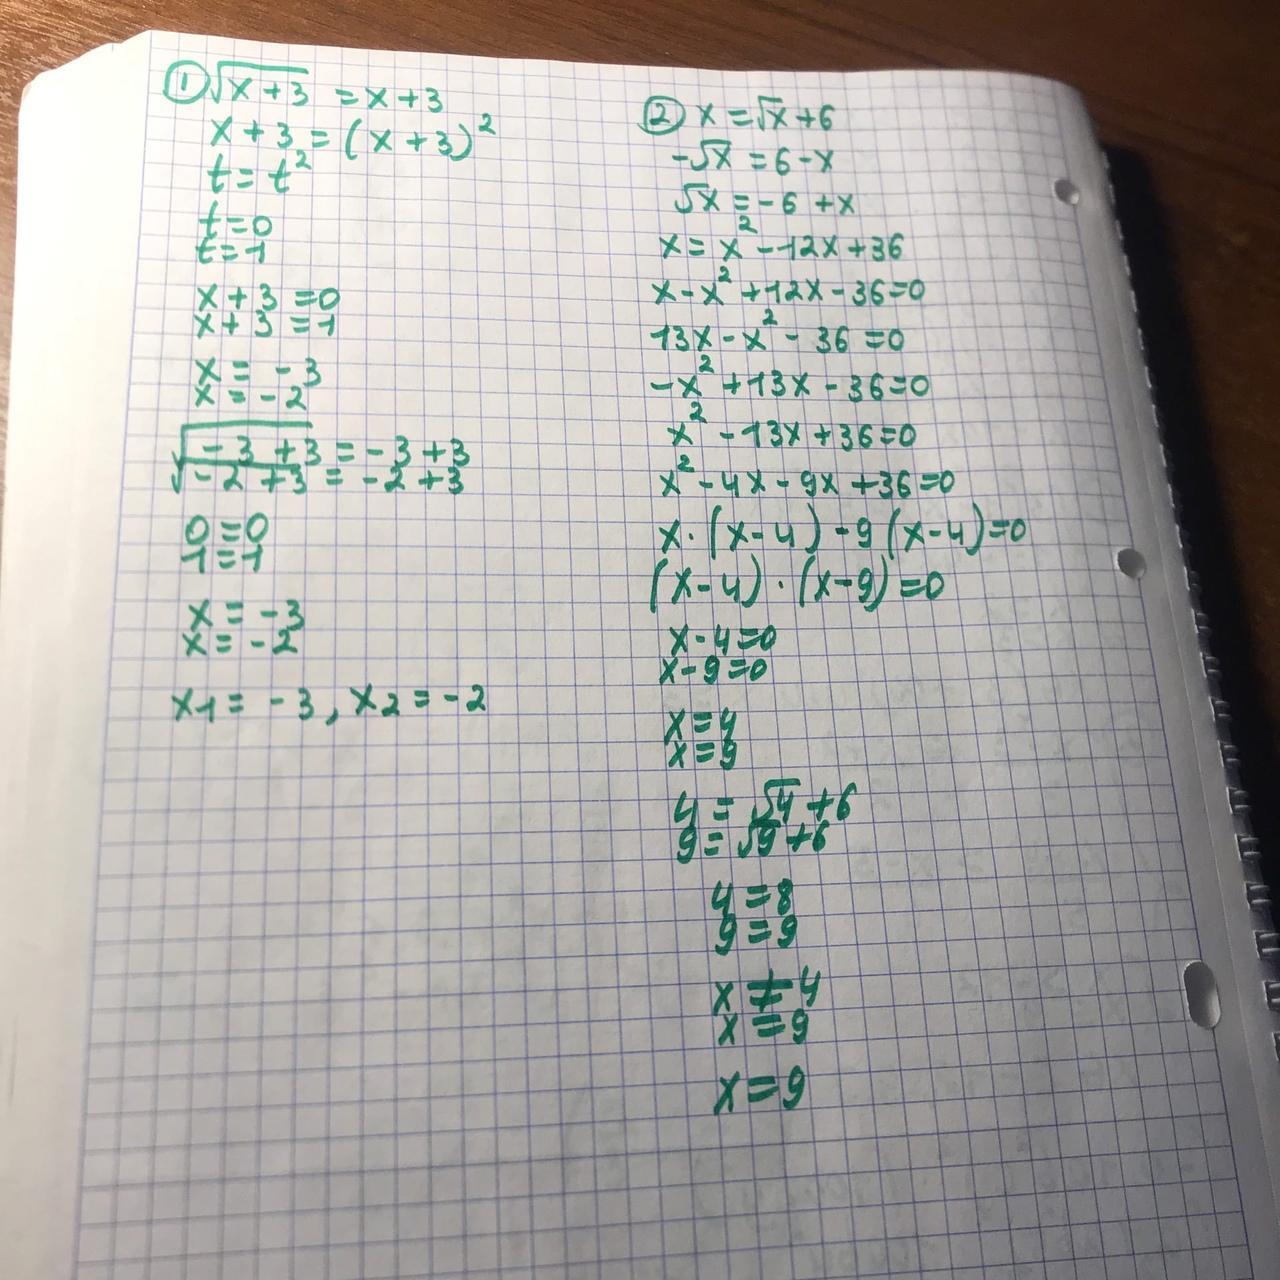 ① √x+3 = x+3
x+3=(x+3)²
t=t²
t=0
t=1
x+3=0
x+3=1
x=-3
x=-2
√-3+3 = -3+3
√-2+3 = -2+3
0=0
1=1
x=-3
x=-2
x1=-3, x2=-2
② x=√x+6
-√x=6-x
√x=-6+x
x=x²-12x+36
x-x²+12x-36=0
13x-x²-36=0
-x²+13x-36=0
x²-13x+36=0
x²-4x-9x+36=0
x·(x-4)-9(x-4)=0
(x-4)·(x-9)=0
x-4=0
x-9=0
x=4
x=9
4=√4+6
9=√9+6
4=8
9=9
x≠4
x=9
x=9